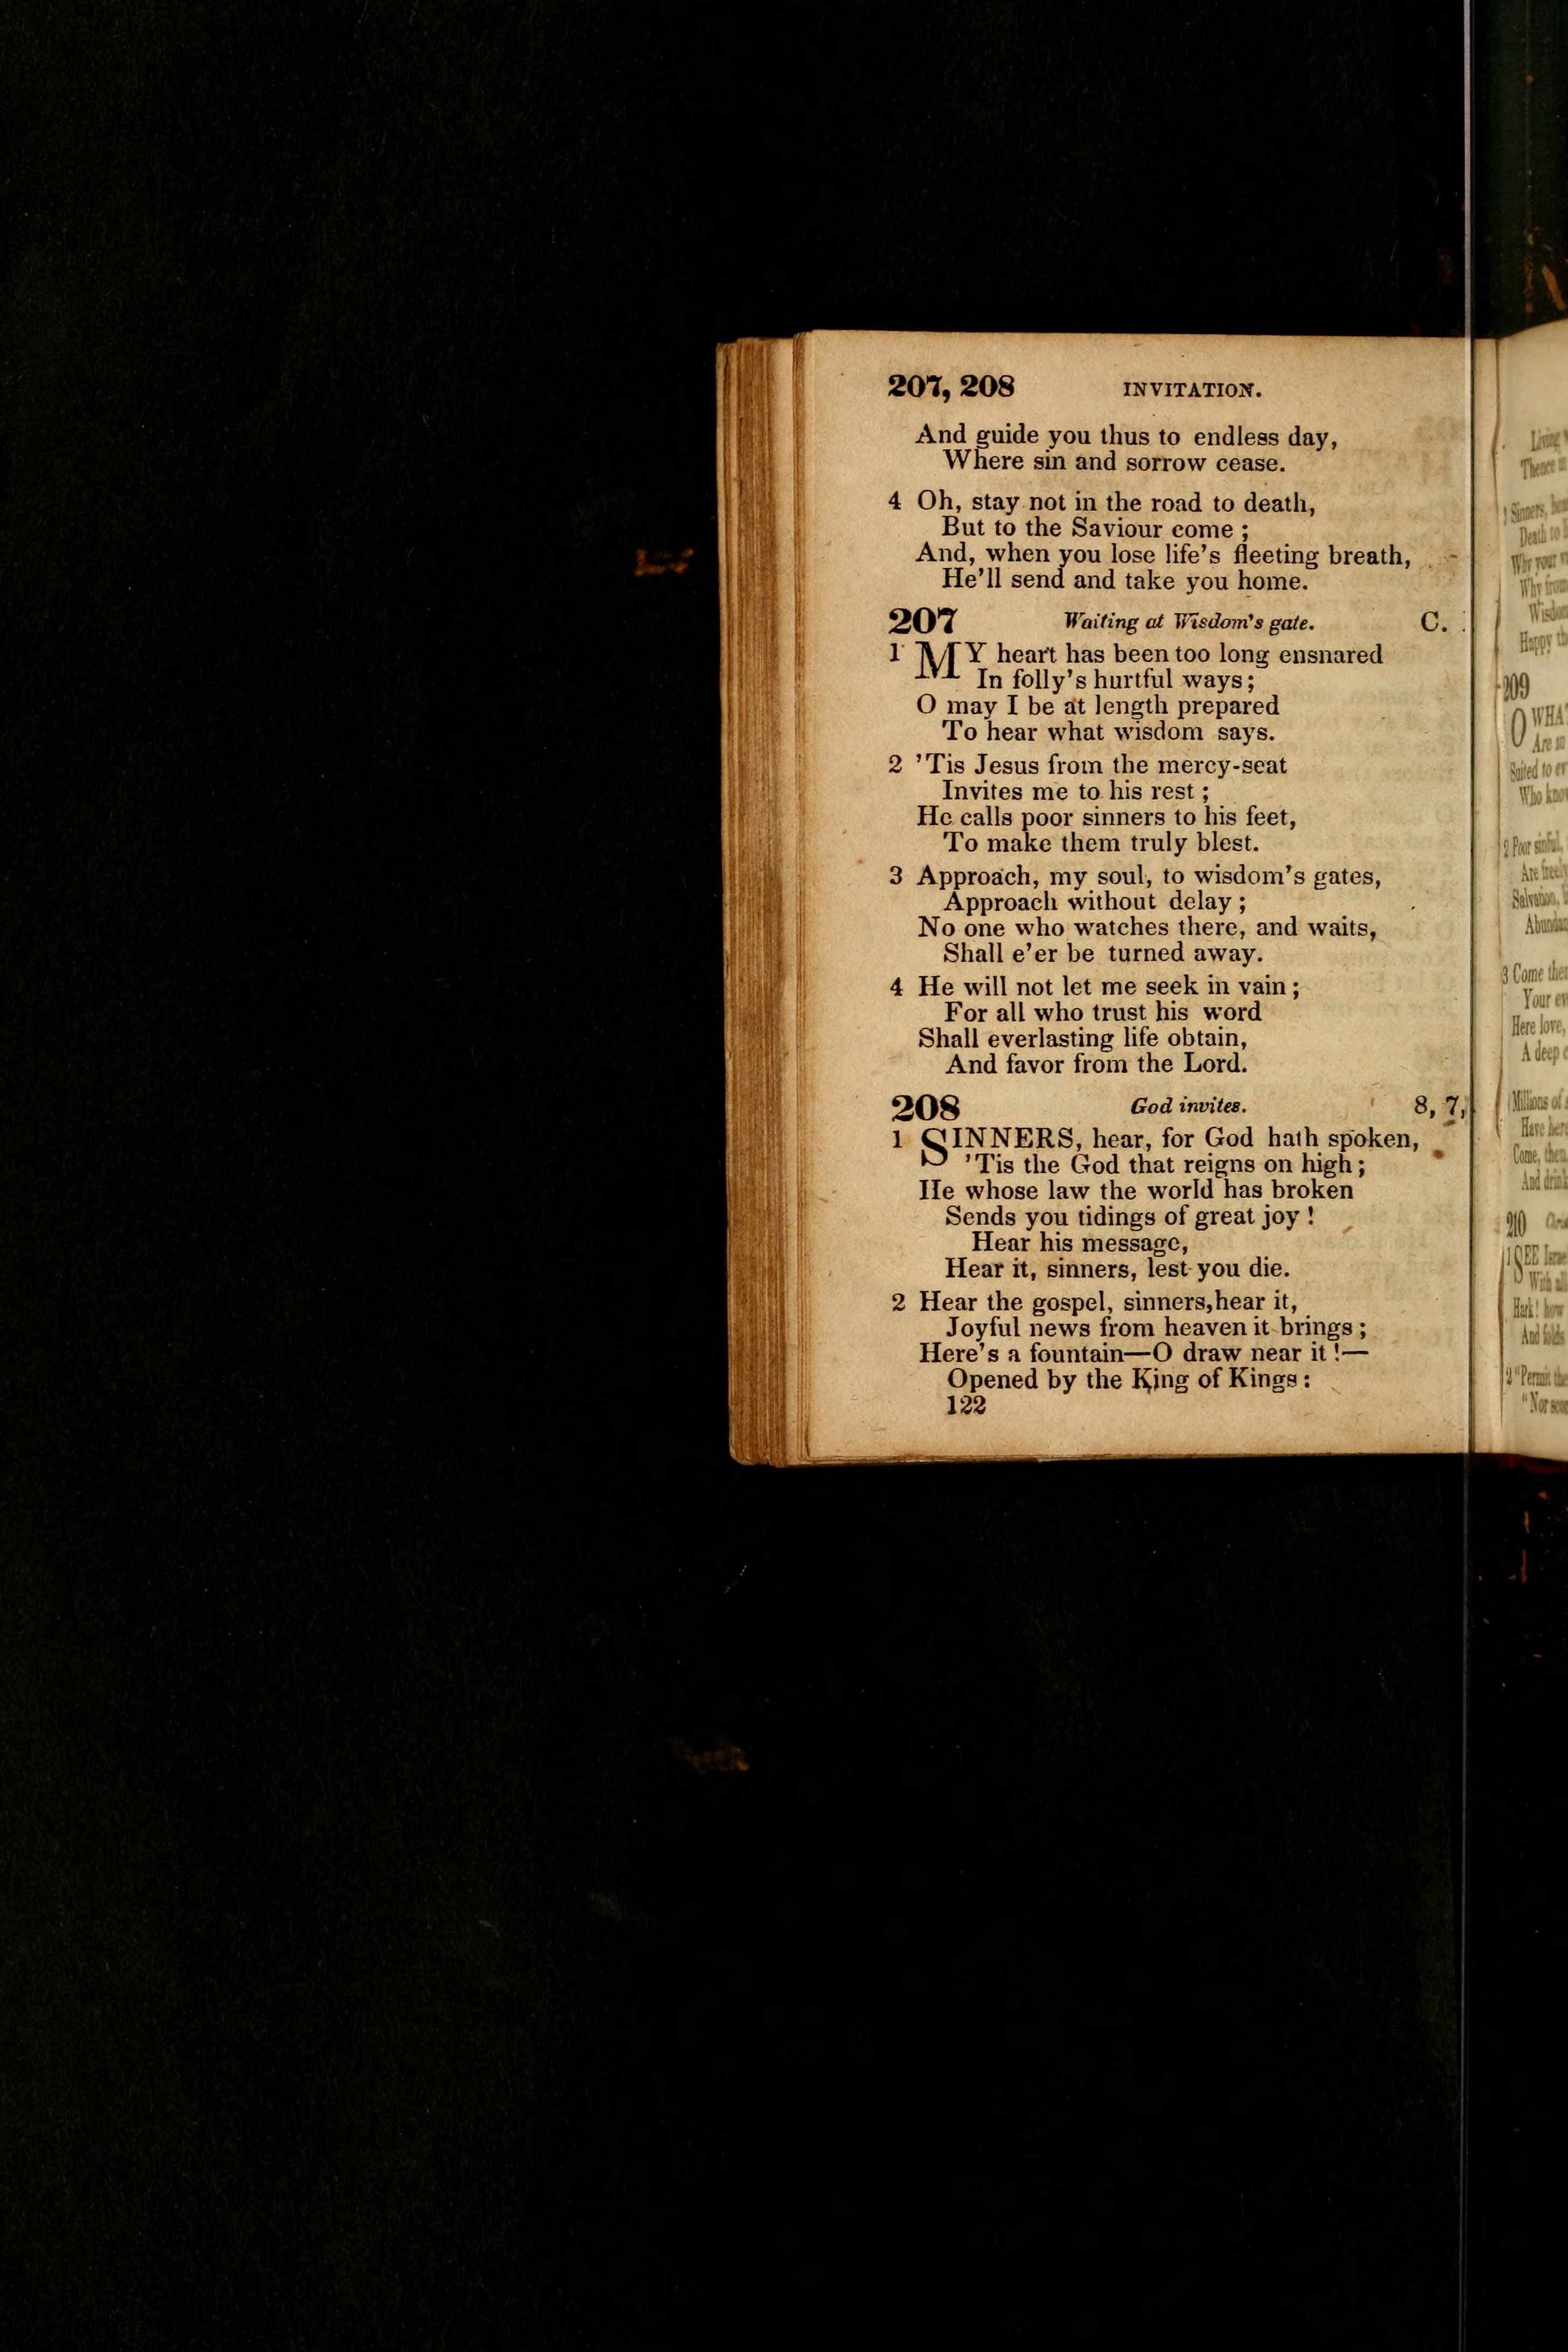 207, 208 INVITATION.
And guide you thus to endless day,
Where sin and sorrow cease.
4 Oh, stay not in the road to death,
But to the Saviour come ;
And, when you lose life's fleeting breath,
He'll send and take you home.
207 Waiting at Wisdom's gate. C.
1 MY heart has been too long ensnared
In folly's hurtful ways ;
O may I be at length prepared
To hear what wisdom says.
2 'Tis Jesus from the mercy-seat
Invites me to his rest ;
He calls poor sinners to his feet,
To make them truly blest.
3 Approach, my soul, to wisdom's gates,
Approach without delay ;
No one who watches there, and waits,
Shall e'er be turned away.
4 He will not let me seek in vain ;
For all who trust his word
Shall everlasting life obtain,
And favor from the Lord.
208 God invites. 8, 7,
1 SINNERS, hear, for God hath spoken,
'Tis the God that reigns on high ;
He whose law the world has broken
Sends you tidings of great joy !
Hear his message,
Hear it, sinners, lest you die.
2 Hear the gospel, sinners, hear it,
Joyful news from heaven it brings ;
Here's a fountain—O draw near it !—
Opened by the King of Kings :
122
Thence
1 Sinners,
Death to
Why your
Why from
Happy
209
O WHA
Are
Suited to
Who
2 Poor sinful,
Are
Salvation,
3 Come
Your
Here love,
A deep
Millions of
Have
Come,
And
210
1 SEE
With
Hark! how
And folds
2 "Permit
"Nor